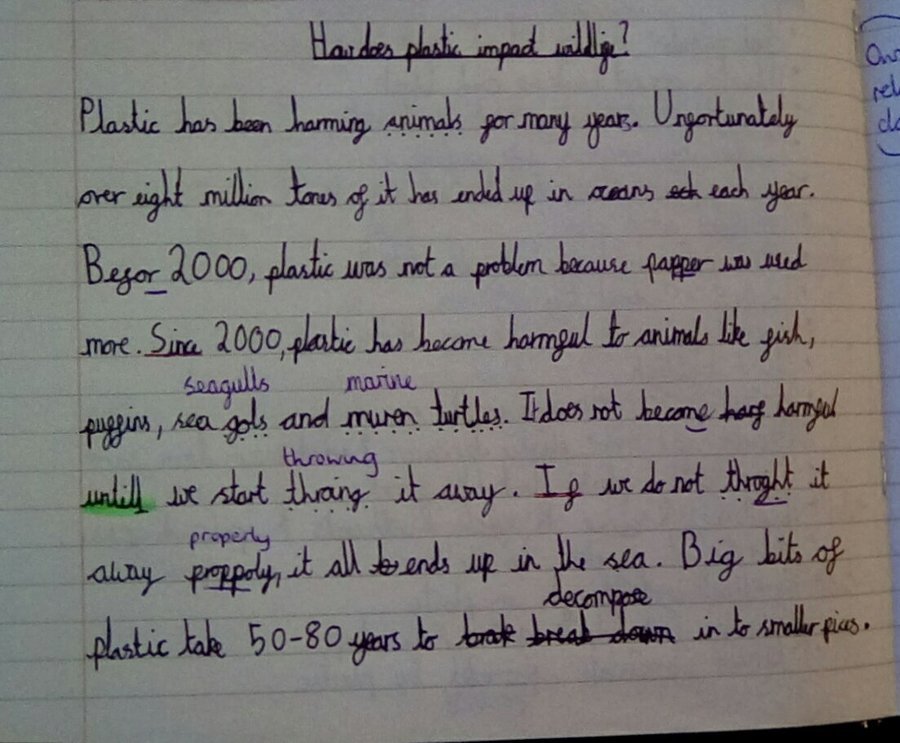 How does plastic impact wildlife?
Plastic has been harming animals for many years. Unfortunately
over eight million tones of it has ended up in oceans each year.
Befor 2000, plastic was not a problem because papper was used
more. Since 2000, plastic has become harmful to animals like fish,
seagulls marine
puffins, sea gols and muren turtles. It does not become harmful
throwing
untill we start thraing it away. If we do not throght it
properly
away proppoly, it all ends up in the sea. Big bits of
decompose
plastic take 50-80 years to break down in to smaller pices.